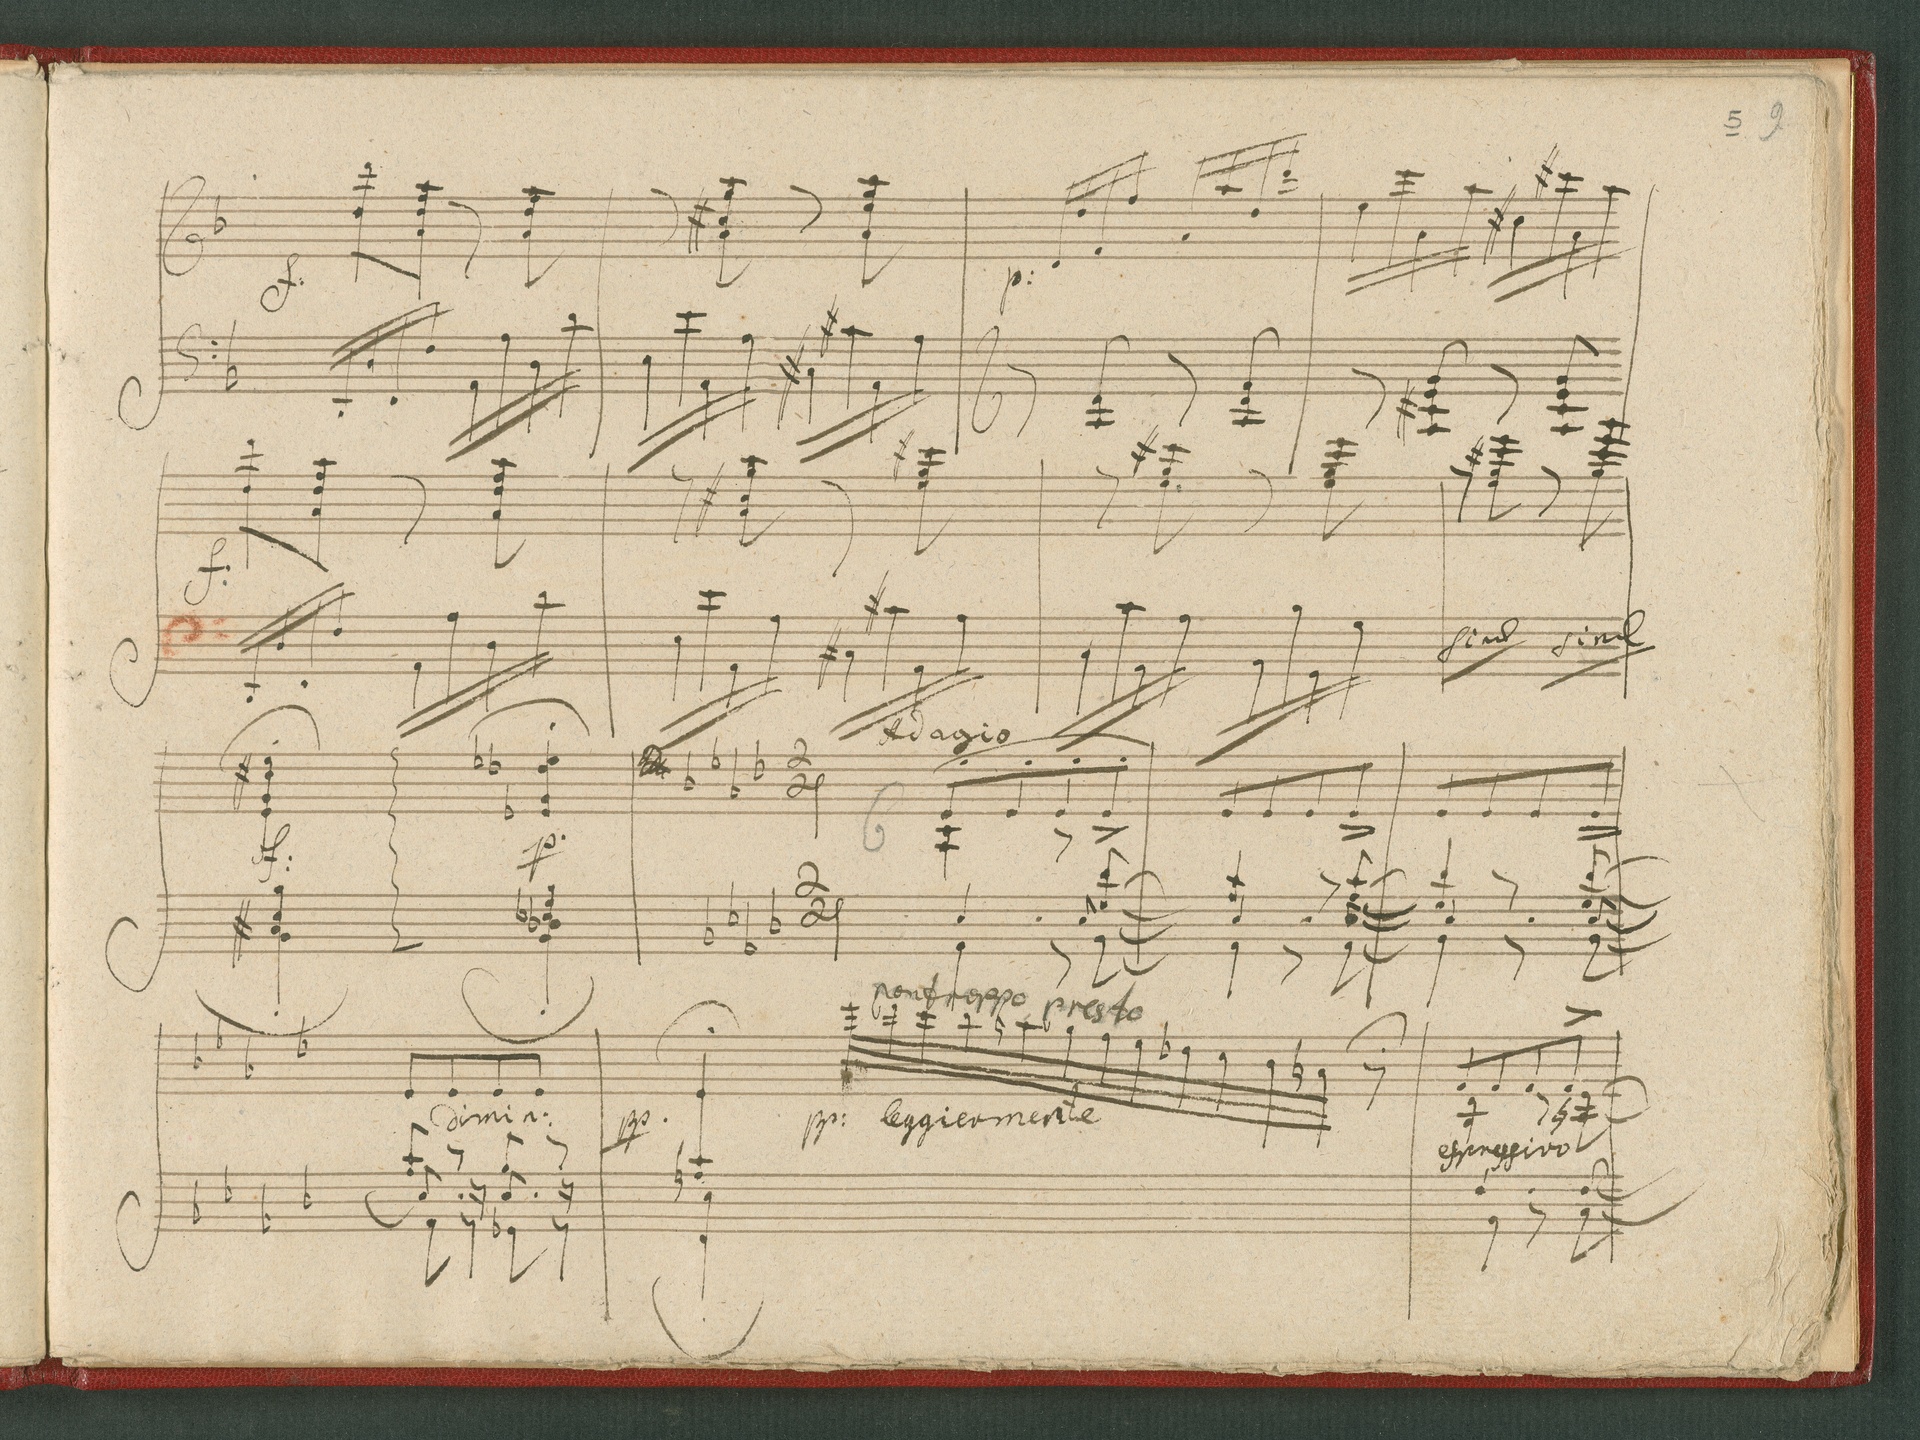 5 9
f:
p:
f:
simil simil
Adagio
2 2
f: p:
2 2
non troppo presto
dimin: pp. pp: leggiermente
espressivo